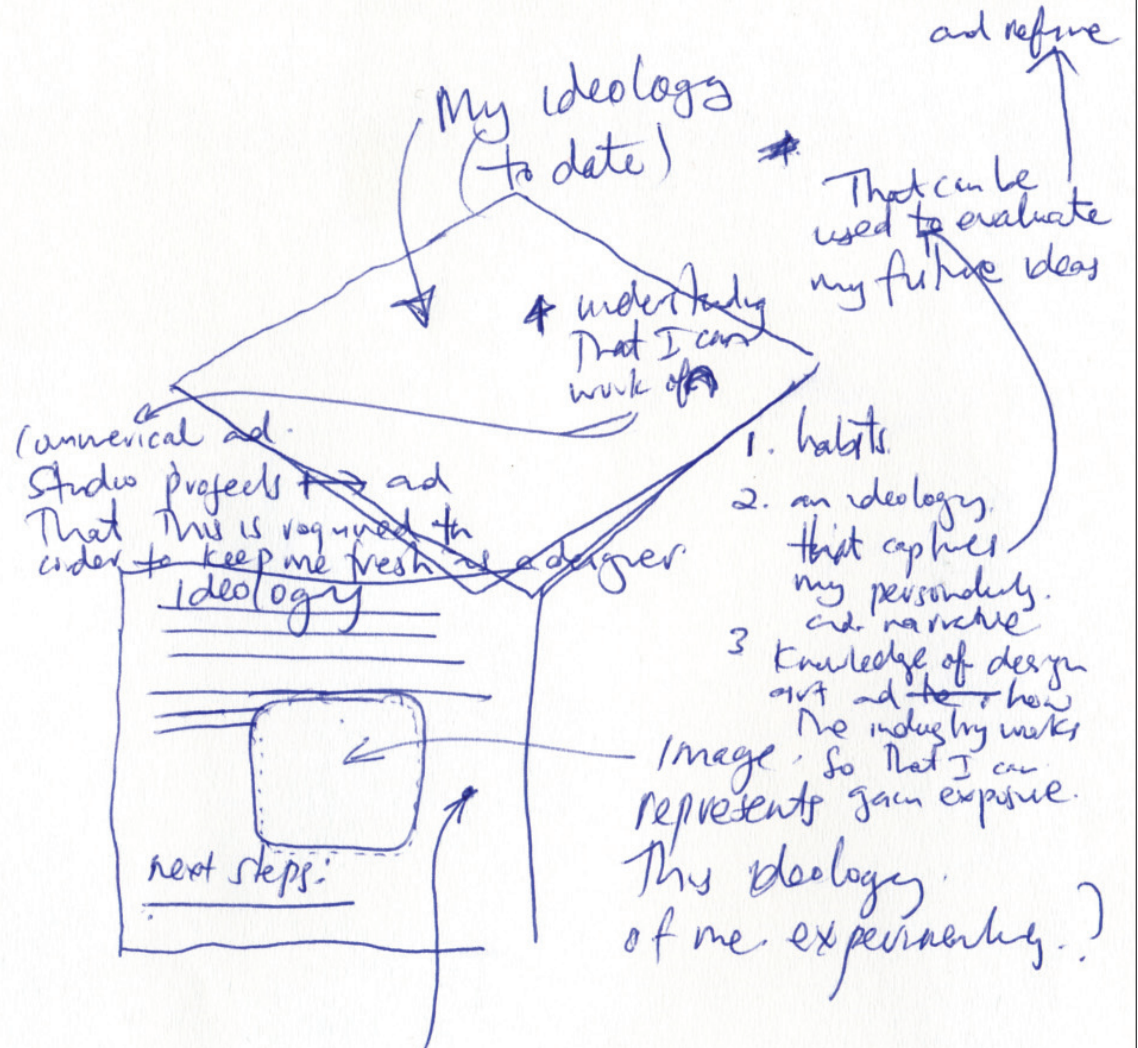 and refine
My ideology
(to date)
That can be
used to evaluate
my future ideas
understanding
That I can
work on
commerical ad.
Studio projects ad
That This is required in
order to keep me fresh as a designer
1. habits.
2. an ideology
that captures
my personality.
and narrative
3 Knowledge of design
art ad how
The industry works
So That I can
gain exposure.
ideology
Image.
represents
This ideology.
of me. experimenting.?
next steps: